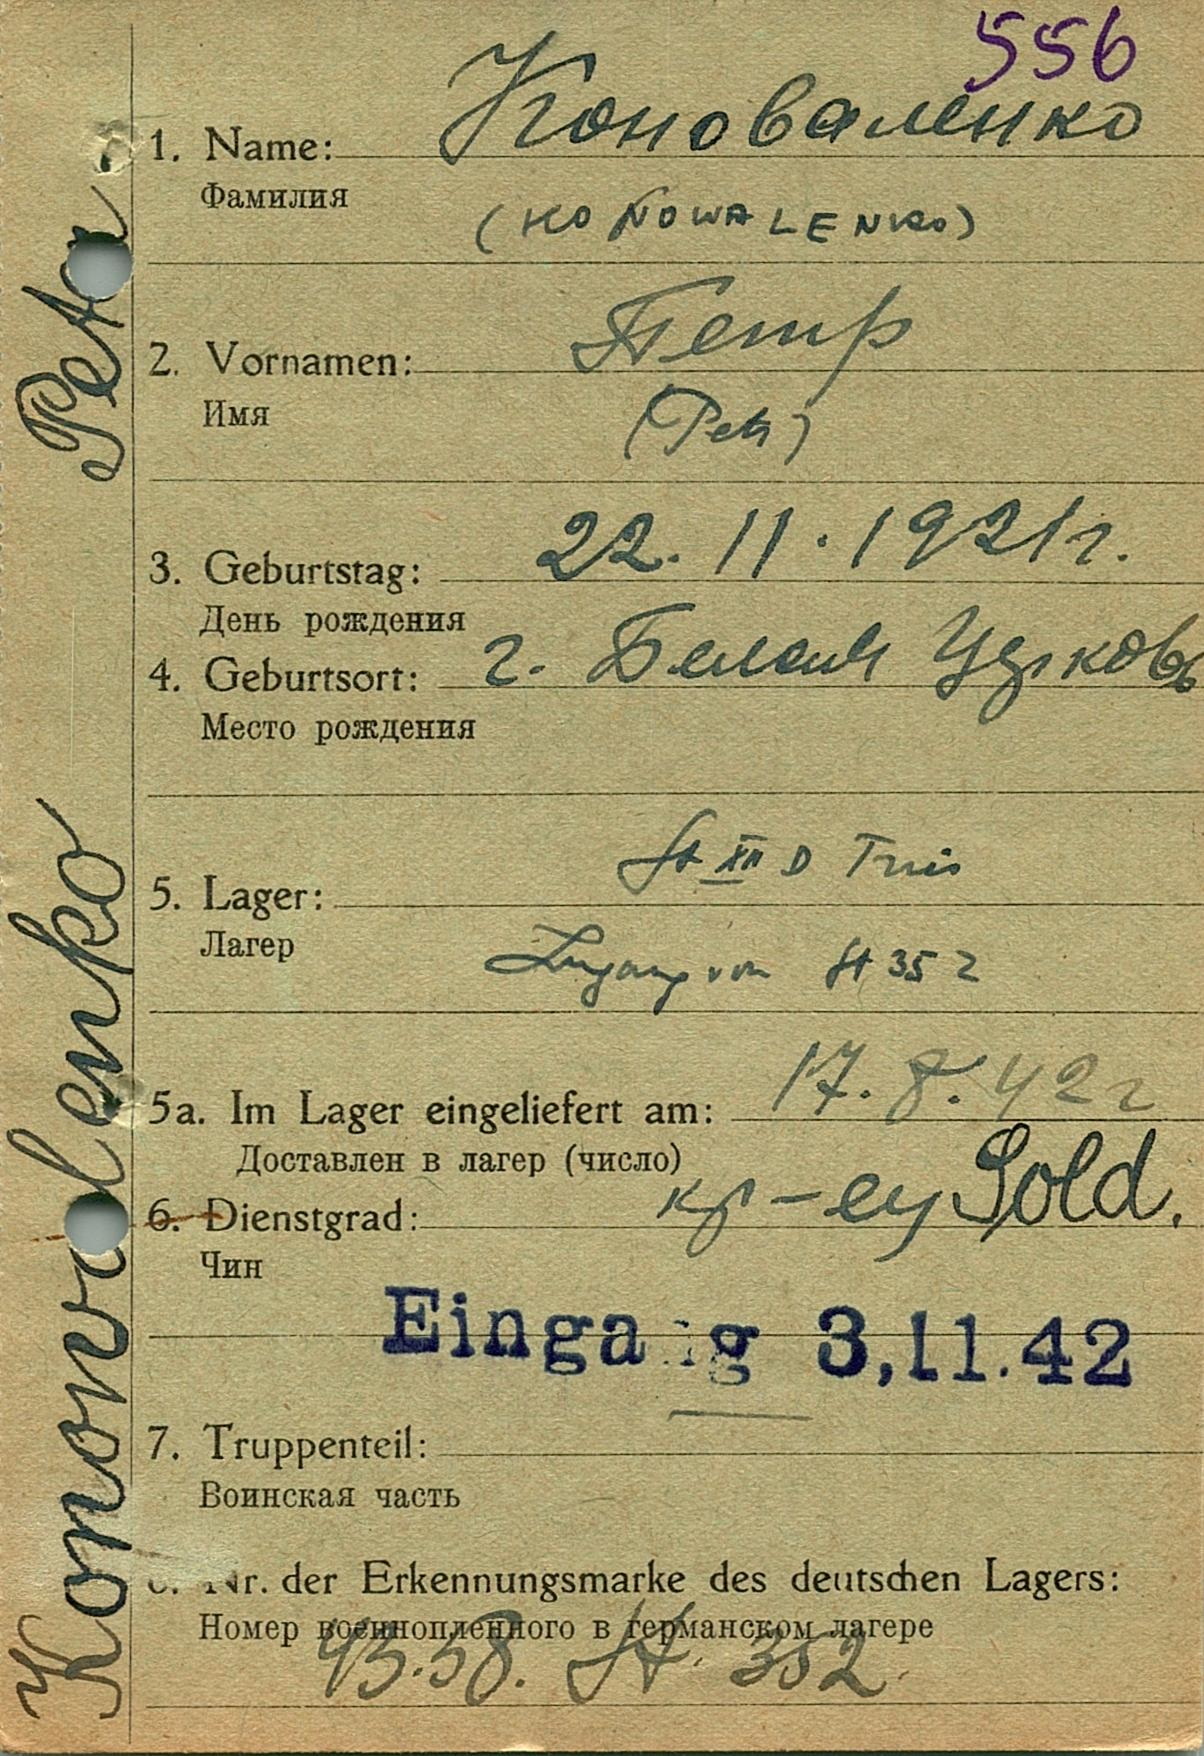 556
1. Name: Коноваленко
Фамилия
(KONOWALENKO)
2. Vornamen: Петр
Имя
(Petr)
3. Geburtstag: 22. 11. 1921 г.
День рождения
4. Geburtsort: г. Белая Церковь
Место рождения
5. Lager: St XII D Trier
Лагер
Zugang von St 352
5a. Im Lager eingeliefert am: 17. 8. 42 г
Доставлен в лагер (число)
6. Dienstgrad: кр-ец Sold.
Чин
Eingang 3.11.42
7. Truppenteil:
Воинская часть
8. Nr. der Erkennungsmarke des deutschen Lagers:
Номер военнопленного в германском лагере
St. 352
Konovalenko